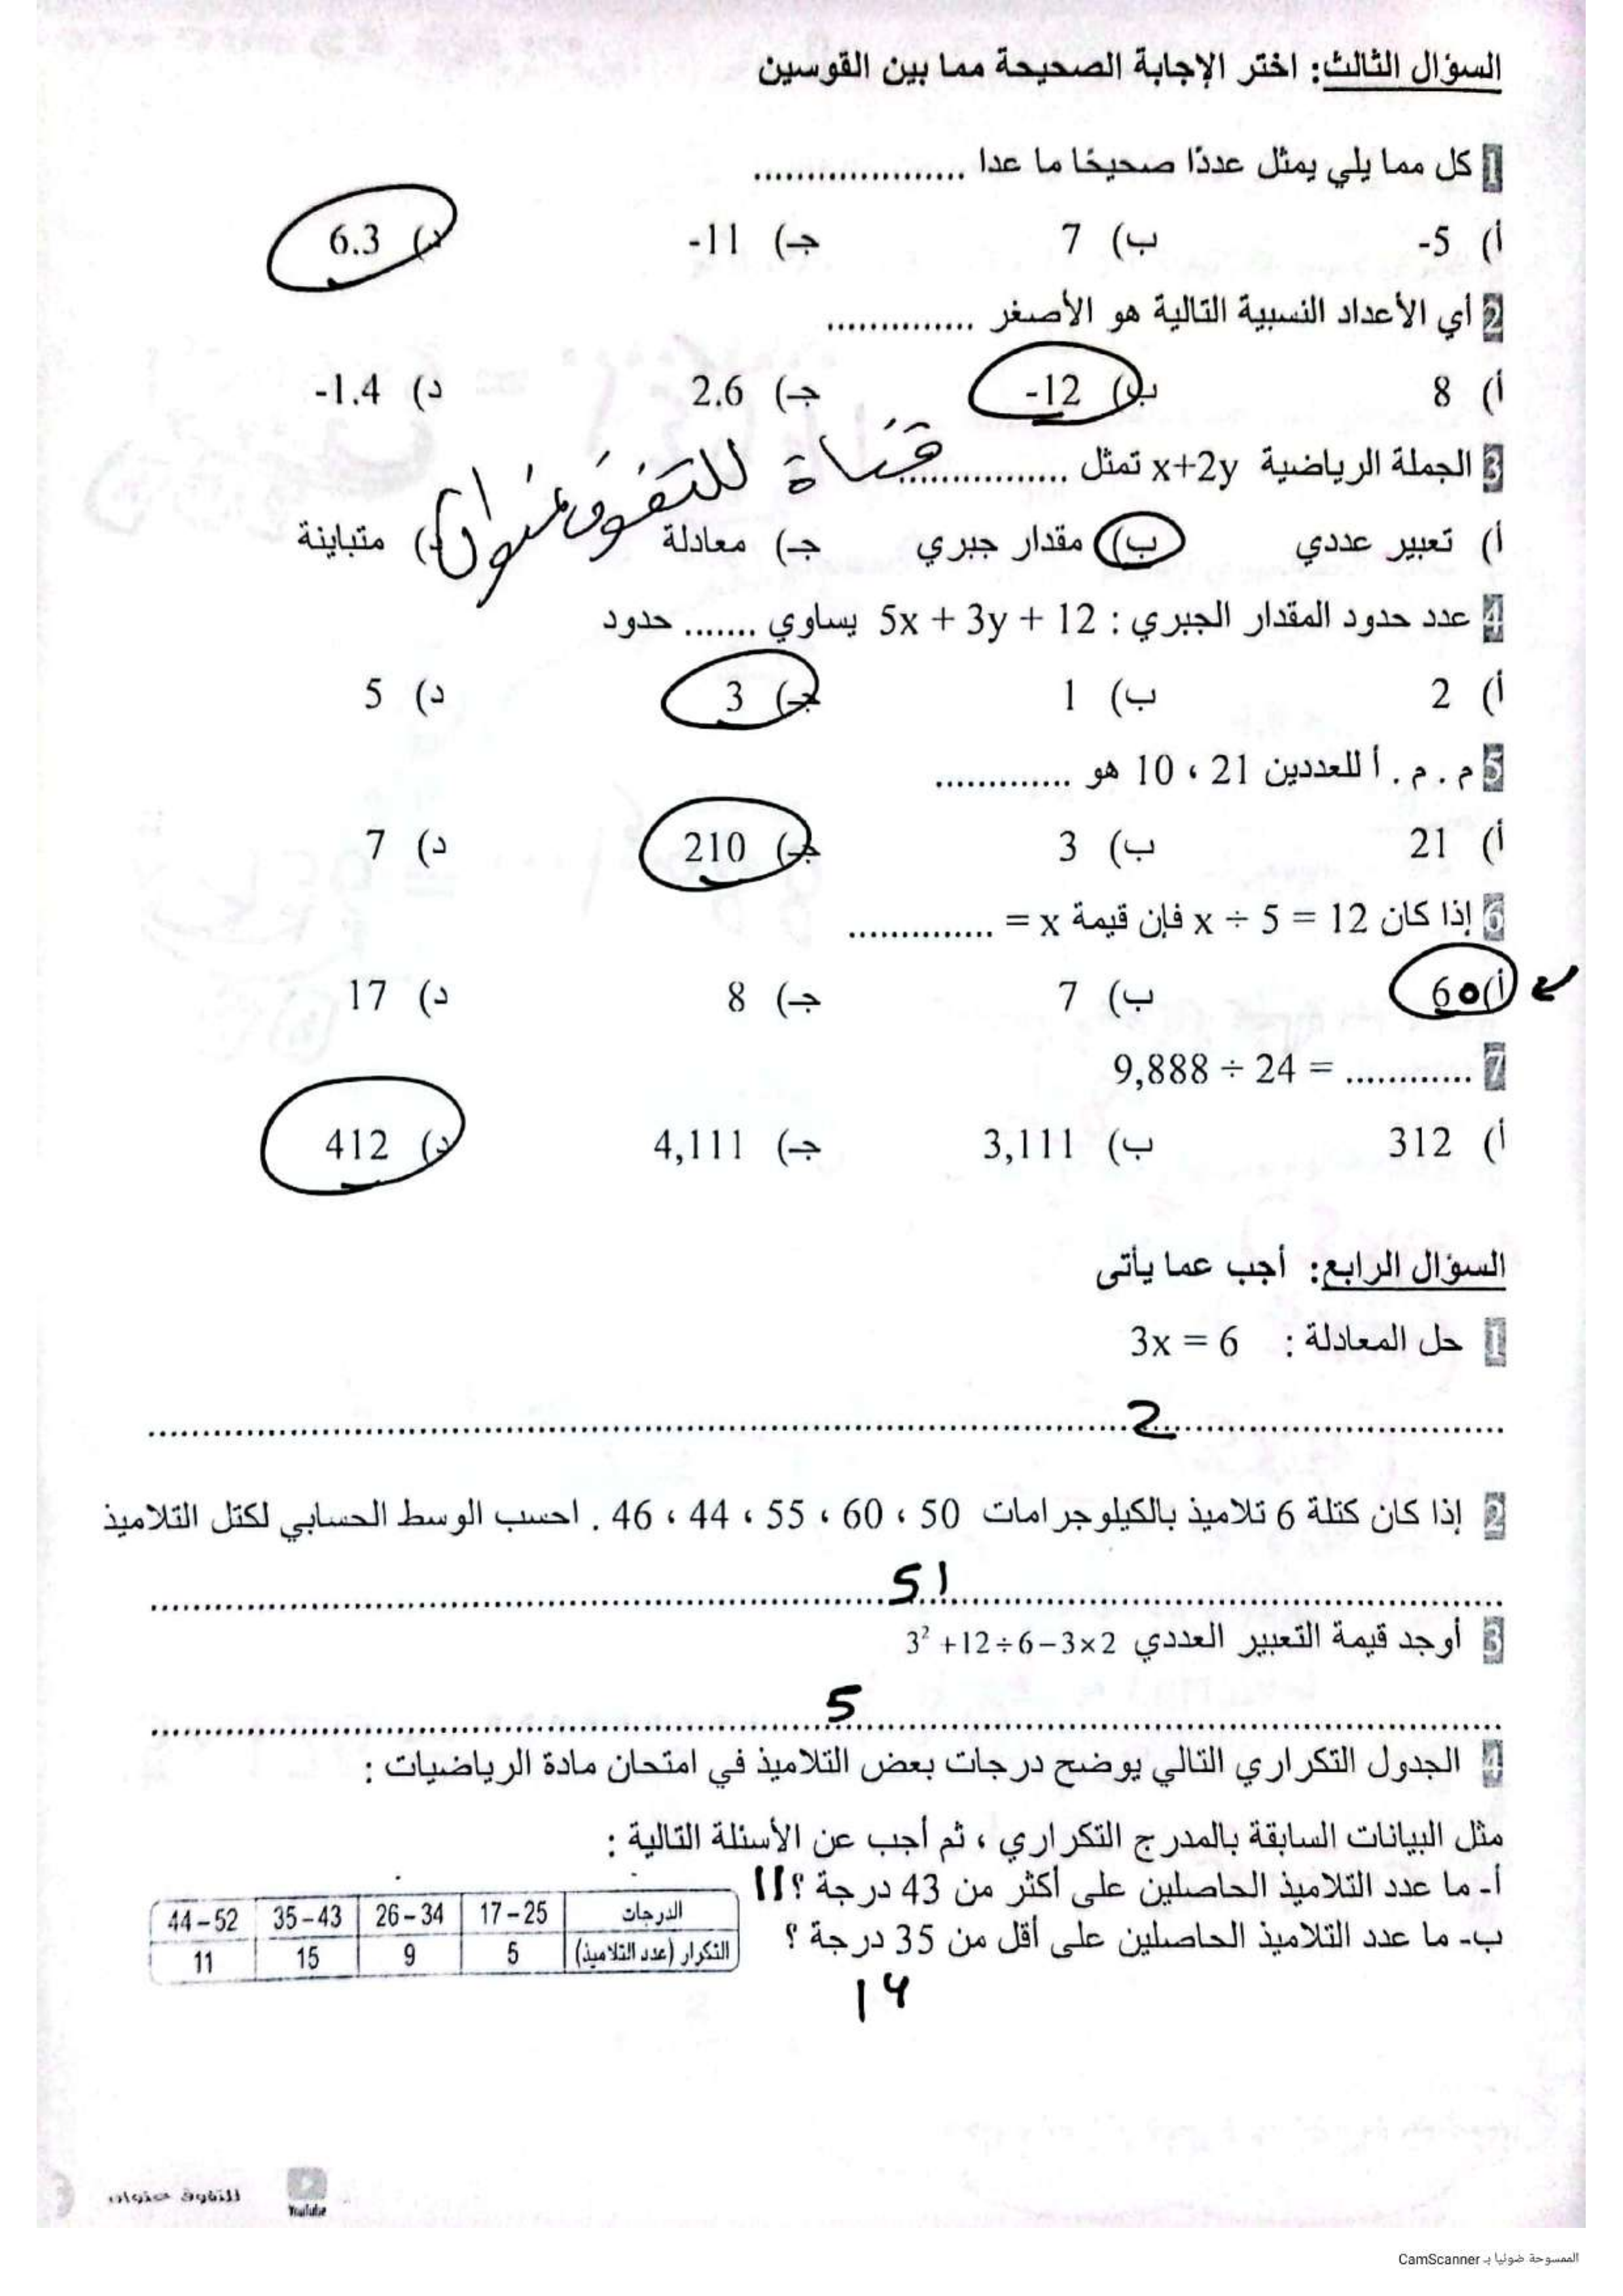 السؤال الثالث: اختر الإجابة الصحيحة مما بين القوسين
1 كل مما يلي يمثل عددًا صحيحًا ما عدا ....................
أ) -5 ب) 7 جـ) -11 د) 6.3
2 أي الأعداد النسبية التالية هو الأصغر ..............
أ) 8 ب) -12 جـ) 2.6 د) -1.4
3 الجملة الرياضية x+2y تمثل ................
قناة للتفوق عنوان
أ) تعبير عددي ب) مقدار جبري جـ) معادلة د) متباينة
4 عدد حدود المقدار الجبري : 5x + 3y + 12 يساوي ....... حدود
أ) 2 ب) 1 جـ) 3 د) 5
5 م . م . أ للعددين 21 ، 10 هو .............
أ) 21 ب) 3 جـ) 210 د) 7
6 إذا كان x ÷ 5 = 12 فإن قيمة x = ..............
أ) 60 ب) 7 جـ) 8 د) 17
7 9,888 ÷ 24 = ............
أ) 312 ب) 3,111 جـ) 4,111 د) 412
السؤال الرابع: أجب عما يأتى
1 حل المعادلة : 3x = 6
2
2 إذا كان كتلة 6 تلاميذ بالكيلوجرامات 50 ، 60 ، 55 ، 44 ، 46 . احسب الوسط الحسابي لكتل التلاميذ
51
3 أوجد قيمة التعبير العددي 3² +12÷6−3×2
5
4 الجدول التكراري التالي يوضح درجات بعض التلاميذ في امتحان مادة الرياضيات :
مثل البيانات السابقة بالمدرج التكراري ، ثم أجب عن الأسئلة التالية :
أ- ما عدد التلاميذ الحاصلين على أكثر من 43 درجة ؟ 11
ب- ما عدد التلاميذ الحاصلين على أقل من 35 درجة ؟
14
الدرجات 17–25 26–34 35–43 44–52
التكرار (عدد التلاميذ) 5 9 15 11
YouTube للتفوق عنوان
الممسوحة ضوئيا بـ CamScanner